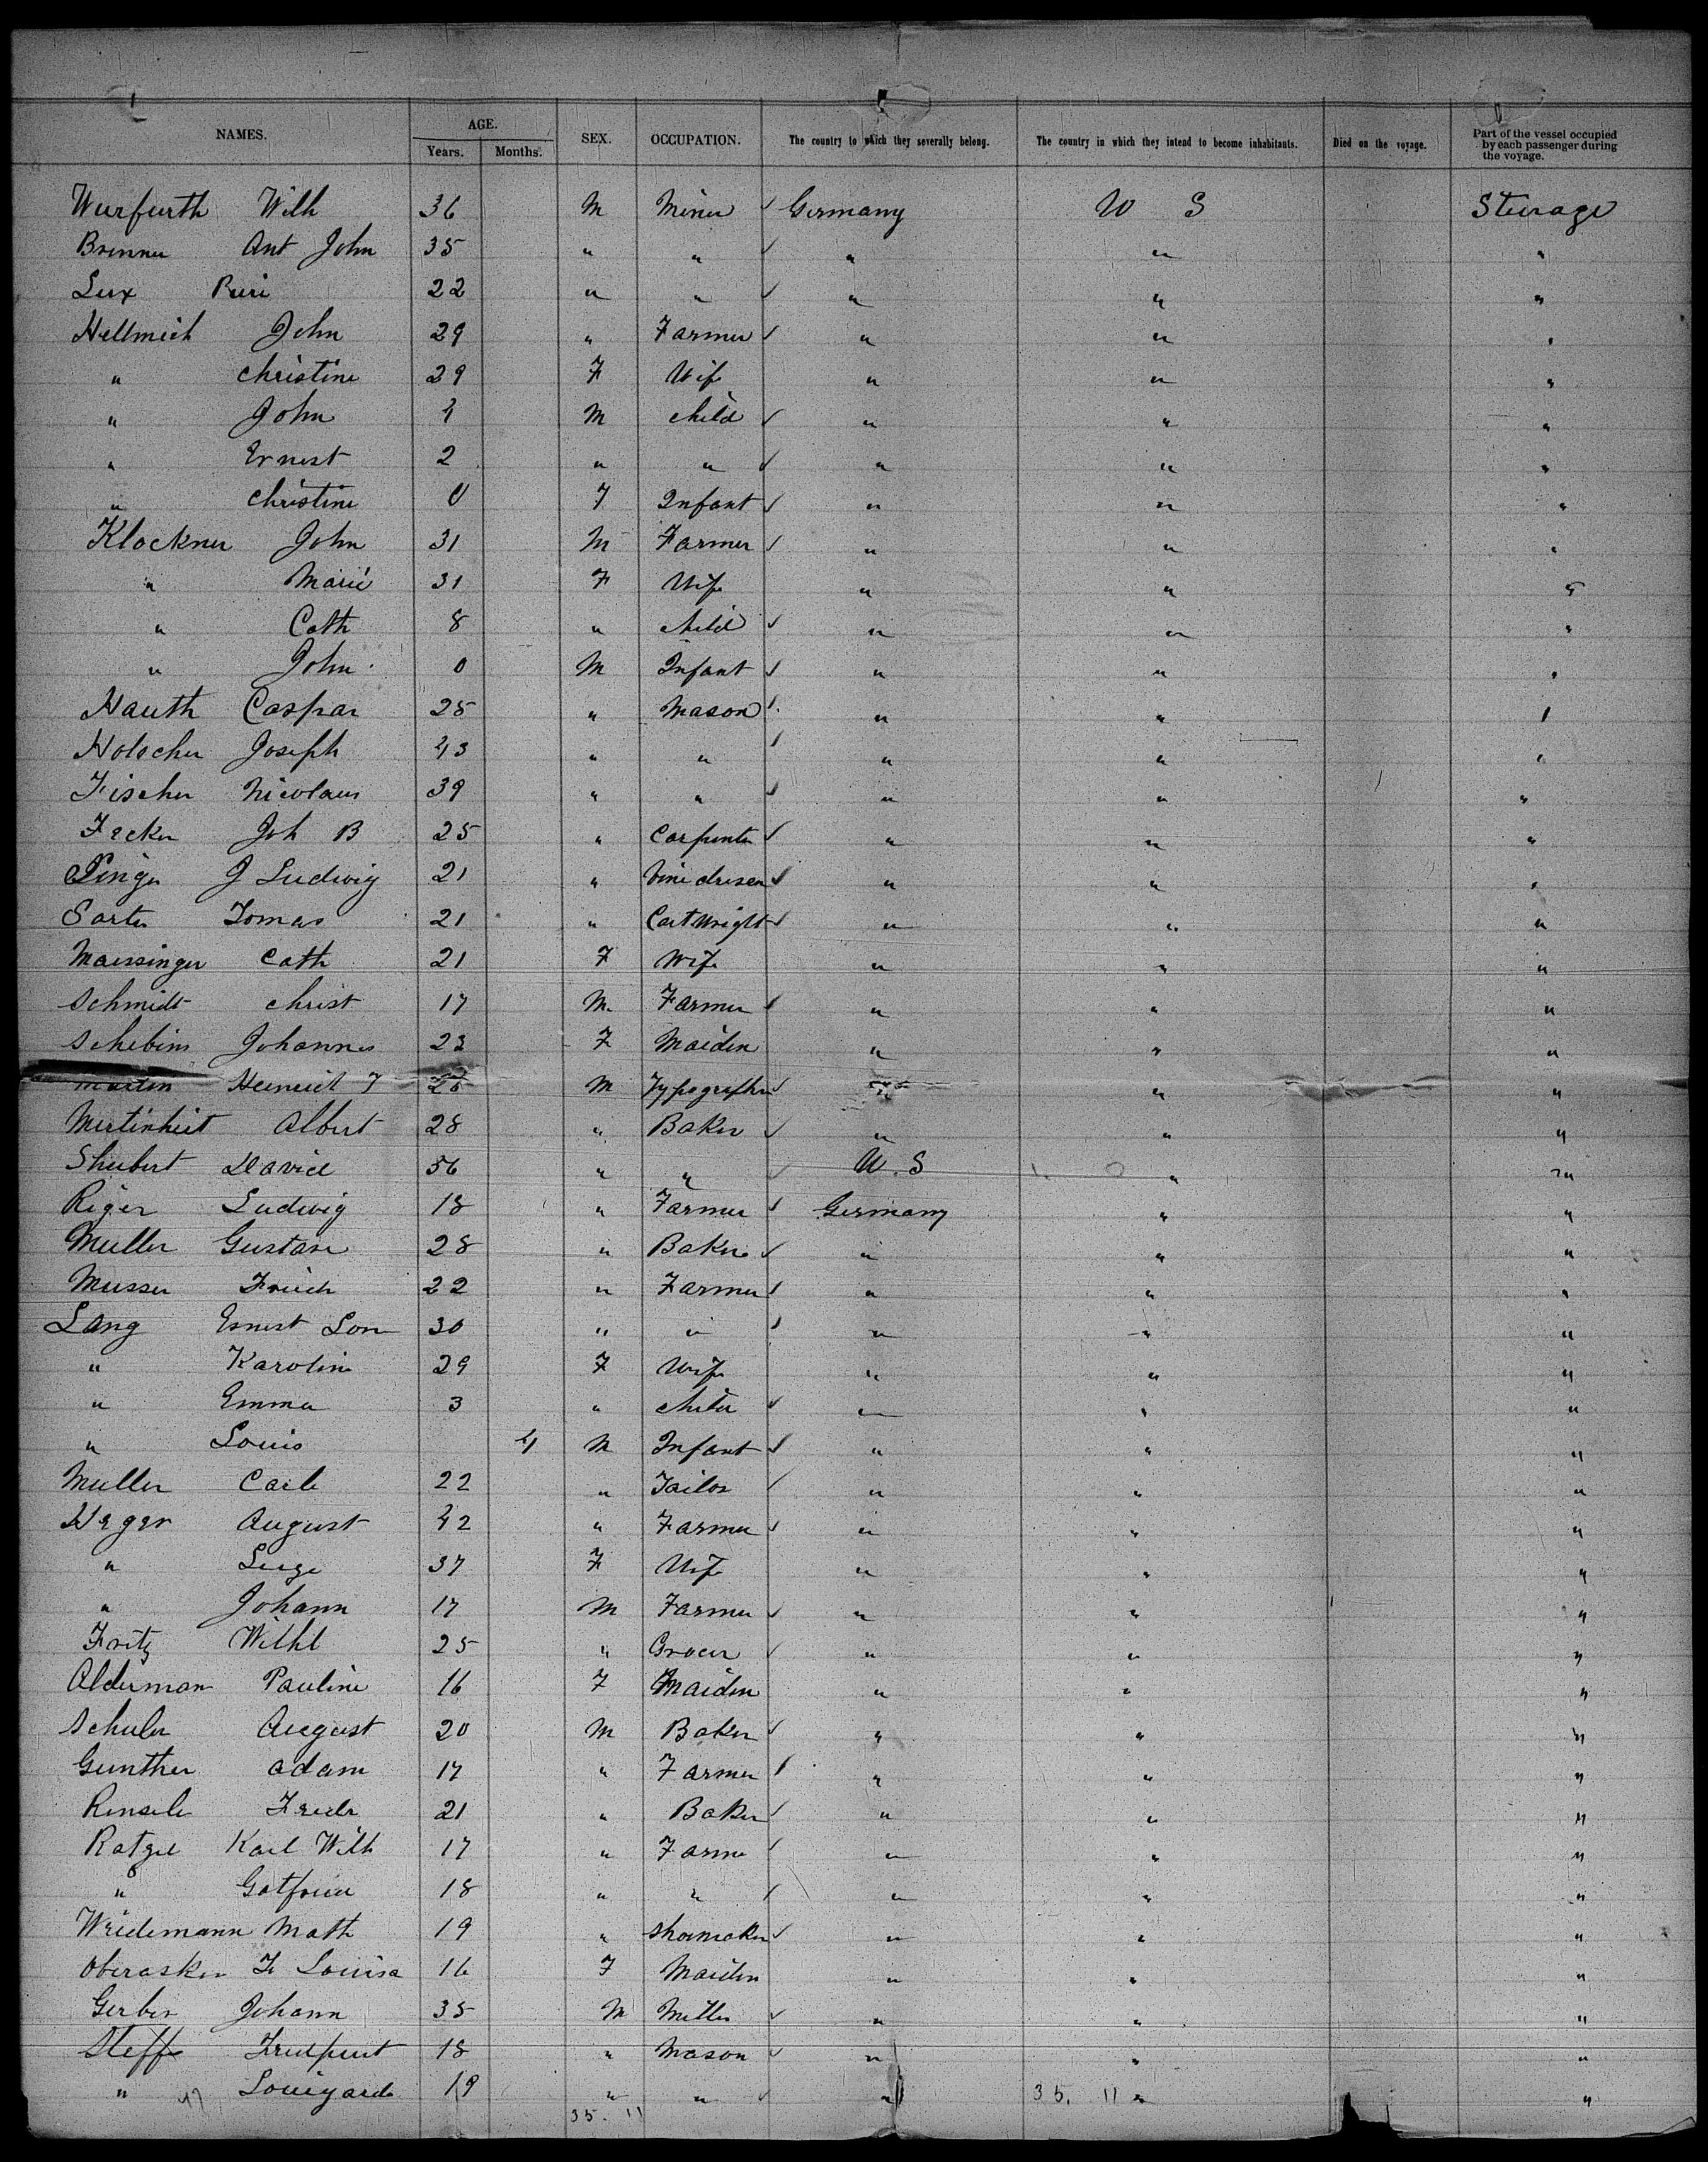 NAMES. AGE. SEX. OCCUPATION. The country to which they severally belong. The country in which they intend to become inhabitants. Died on the voyage. Part of the vessel occupied by each passenger during the voyage.
Years. Months.
Wurfurth Wilh 36 M Miner Germany U S Steerage
Brenner Ant John 35 " " " " "
Lux 22 " " " " "
Hellmich John 29 " Farmer " " "
" Christine 29 F Wife " " "
" John 4 M Child " " "
" Ernest 2 " " " " "
" Christine 0 F Infant " " "
Klockner John 31 M Farmer " " "
" Marie 31 F Wife " " "
" Cath 8 " Child " " "
" John 0 M Infant " " "
Hauth Caspar 25 " Mason " " "
Holscher Joseph 43 " " " " "
Fischer Nicolaus 39 " " " " "
Fecker Joh B 25 " Carpenter " " "
J Ludwig 21 " " " "
Sarter Tomas 21 " Cartwright " " "
Maessinger Cath 21 F Wife " " "
Schmidt Christ 17 M. Farmer " " "
Johannes 23 F Maiden " " "
Martin Heinrich F M Typographer " " "
Albert 28 " Baker " " "
Shubert David 56 " " U. S " "
Riger Ludwig 18 " Farmer Germany " "
Muller Gustave 28 " Baker " " "
Musser Friedr 22 " Farmer " " "
Lang Ernest 30 " " " " "
" Karoline 29 F Wife " " "
" Emma 3 " Child " " "
" Louis 4 M Infant " " "
Muller Carle 22 " Tailor " " "
Heger August 42 " Farmer " " "
" 37 F Wife " " "
" Johann 17 M Farmer " " "
Fritz Wilhl 25 " Grocer " " "
Alderman Pauline 16 F Maiden " " "
Schuler August 20 M Baker " " "
Gunther Adam 17 " Farmer " " "
Friedr 21 " Baker " " "
Ratzel Karl Wilh 17 " Farmer " " "
" Gotfried 18 " " " " "
Weidemann Math 19 " Shoemaker " " "
F Louisa 16 F Maiden " " "
Gerber Johann 35 M Miller " " "
Steffe 18 " Mason " " "
" 19 " " " " "
35. 11 35. 11